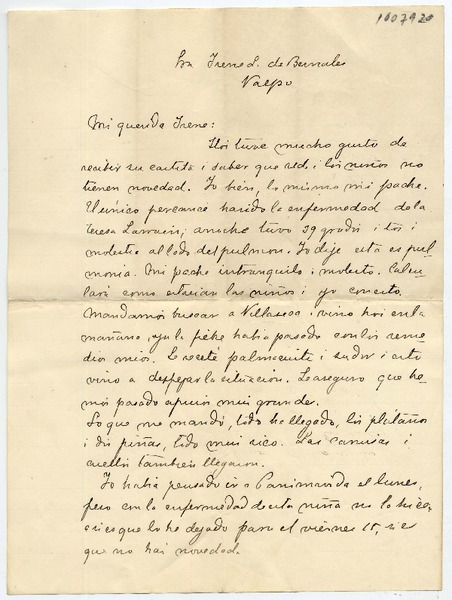 1607920
Sra Irene L. de Bernales
Valpo
Mi querida Irene:
Hoi tuve mucho gusto de
recibir su cartita i saber que ud. i los niños no
tienen novedad. Yo bien, lo mismo mi padre.
El único percance ha sido la enfermedad de la
Teresa Larrain; anoche tuvo 39 grados i tos i
molestia al lado del pulmon. Yo dije esta es pul-
monia. Mi padre intranquilo i molesto. Calcu-
lará como estarian las niños i yo
Mandamos buscar a Villaseca i vino hoi en la
mañana, ya la fiebre habia pasado con los reme-
dios mios. Le recetó i sudor i
vino a despejar la situacion. Le aseguro que he-
mos pasado apuros mui grande.
Lo que me mandó, todo ha llegado, los plátanos
i dos piñas, todo mui rico. Las camisas i
cuellos tambien llegaron.
Yo habia pensado ir a Panimávida el lunes,
pero con la enfermedad de esta niña no lo hice,
asi es que lo he dejado para el viérnes 15, si es
que no hai novedad.